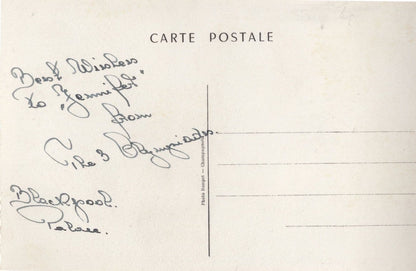 CARTE POSTALE
Best Wishes
To "Jennifer"
from
The 3 Olympiades.
Blackpool.
Palace.
Photo Rouget — Champagnole